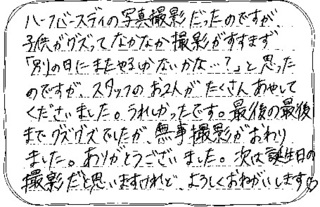 ハーフバースディの写真撮影だったのですが、
子供がグズってなかなか撮影がすすまず
「別の日にまたやるしかないかな…?」と思った
のですが、スタッフのお2人がたくさんあやして
くださいました。うれしかったです。最後の最後
までグズグズでしたが、無事撮影がおわり
ました。ありがとうございました。次は誕生日の
撮影だと思いますけれど、よろしくおねがいします♡